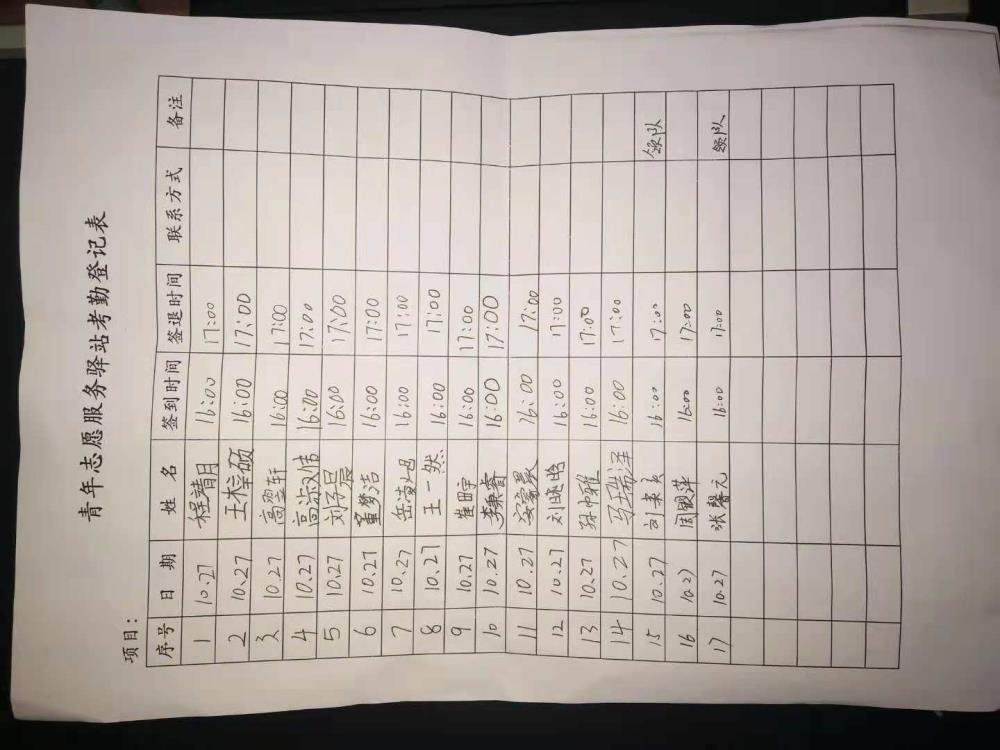 青年志愿服务驿站考勤登记表
项目：
序号 日期 姓名 签到时间 签退时间 联系方式 备注
1 10.27 程靖月 16:00 17:00
2 10.27 16:00 17:00
3 10.27 16:00 17:00
4 10.27 高淑炜 16:00 17:00
5 10.27 刘子晨 16:00 17:00
6 10.27 董梦洁 16:00 17:00
7 10.27 16:00 17:00
8 10.27 王一然 16:00 17:00
9 10.27 16:00 17:00
10 10.27 16:00 17:00
11 10.27 16:00 17:00
12 10.27 刘晓晗 16:00 17:00
13 10.27 16:00 17:00
14 10.27 马瑞泽 16:00 17:00
15 10.27 16:00 17:00 领队
16 10.27 16:00 17:00
17 10.27 张馨元 16:00 17:00 领队